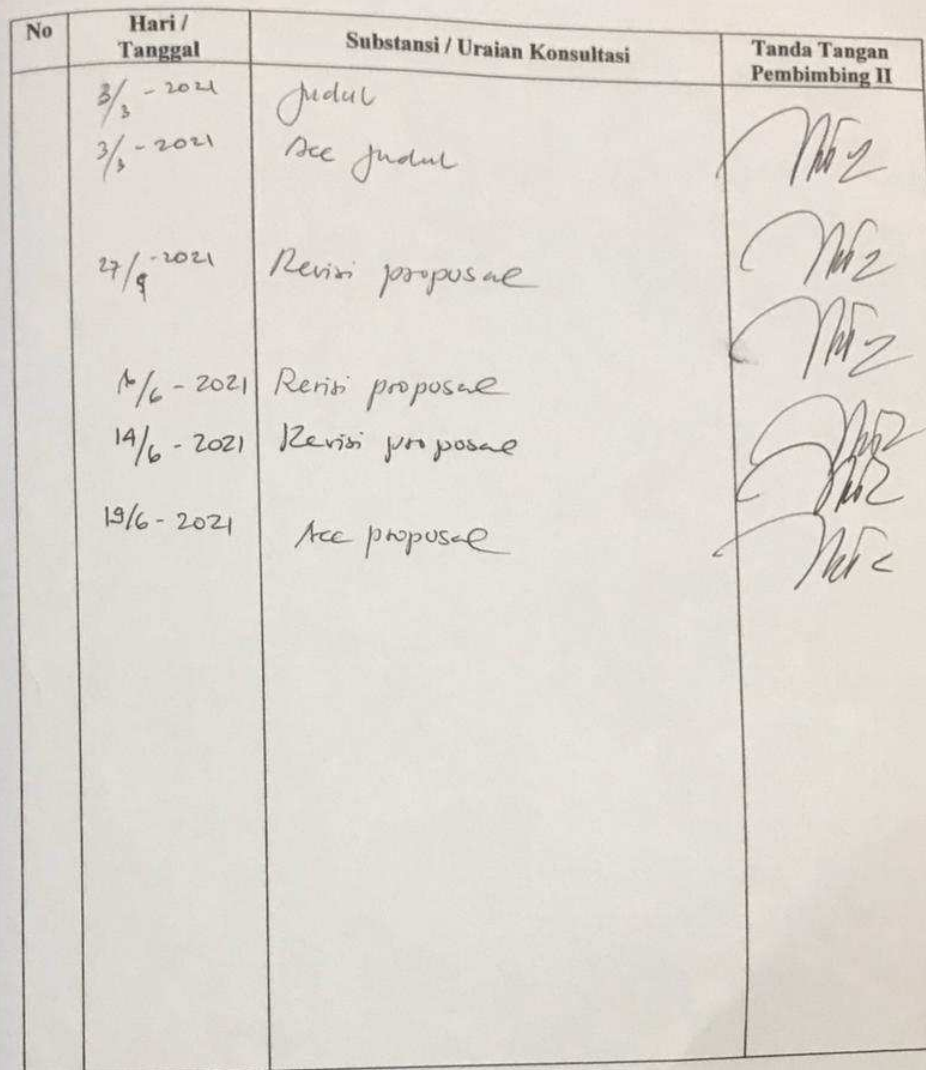 No
Hari / Tanggal
Substansi / Uraian Konsultasi
Tanda Tangan Pembimbing II
3/3 - 2021 Judul
3/3 - 2021 Acc Judul
-2021 Revisi proposal
/6 - 2021 Revisi proposal
14/6 - 2021 Revisi proposal
19/6 - 2021 Acc proposal